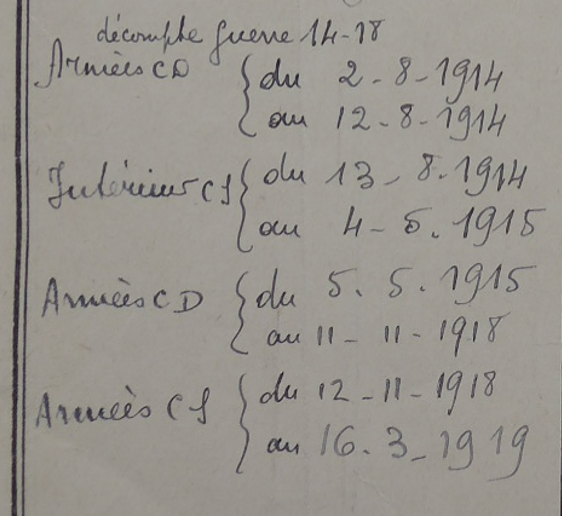 décompte guerre 14-18
Armées CD { du 2-8-1914
au 12-8-1914
Intérieur CS { du 13-8.1914
au 4-5.1915
Armées CD { du 5.5.1915
au 11-11-1918
Armées CS { du 12-11-1918
au 16.3-1919